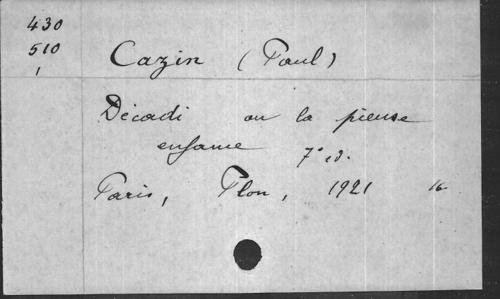 430
510
1
Cazin (Paul)
Décadi ou la pieuse
enfance 7° éd.
Paris, Plon, 1921 16